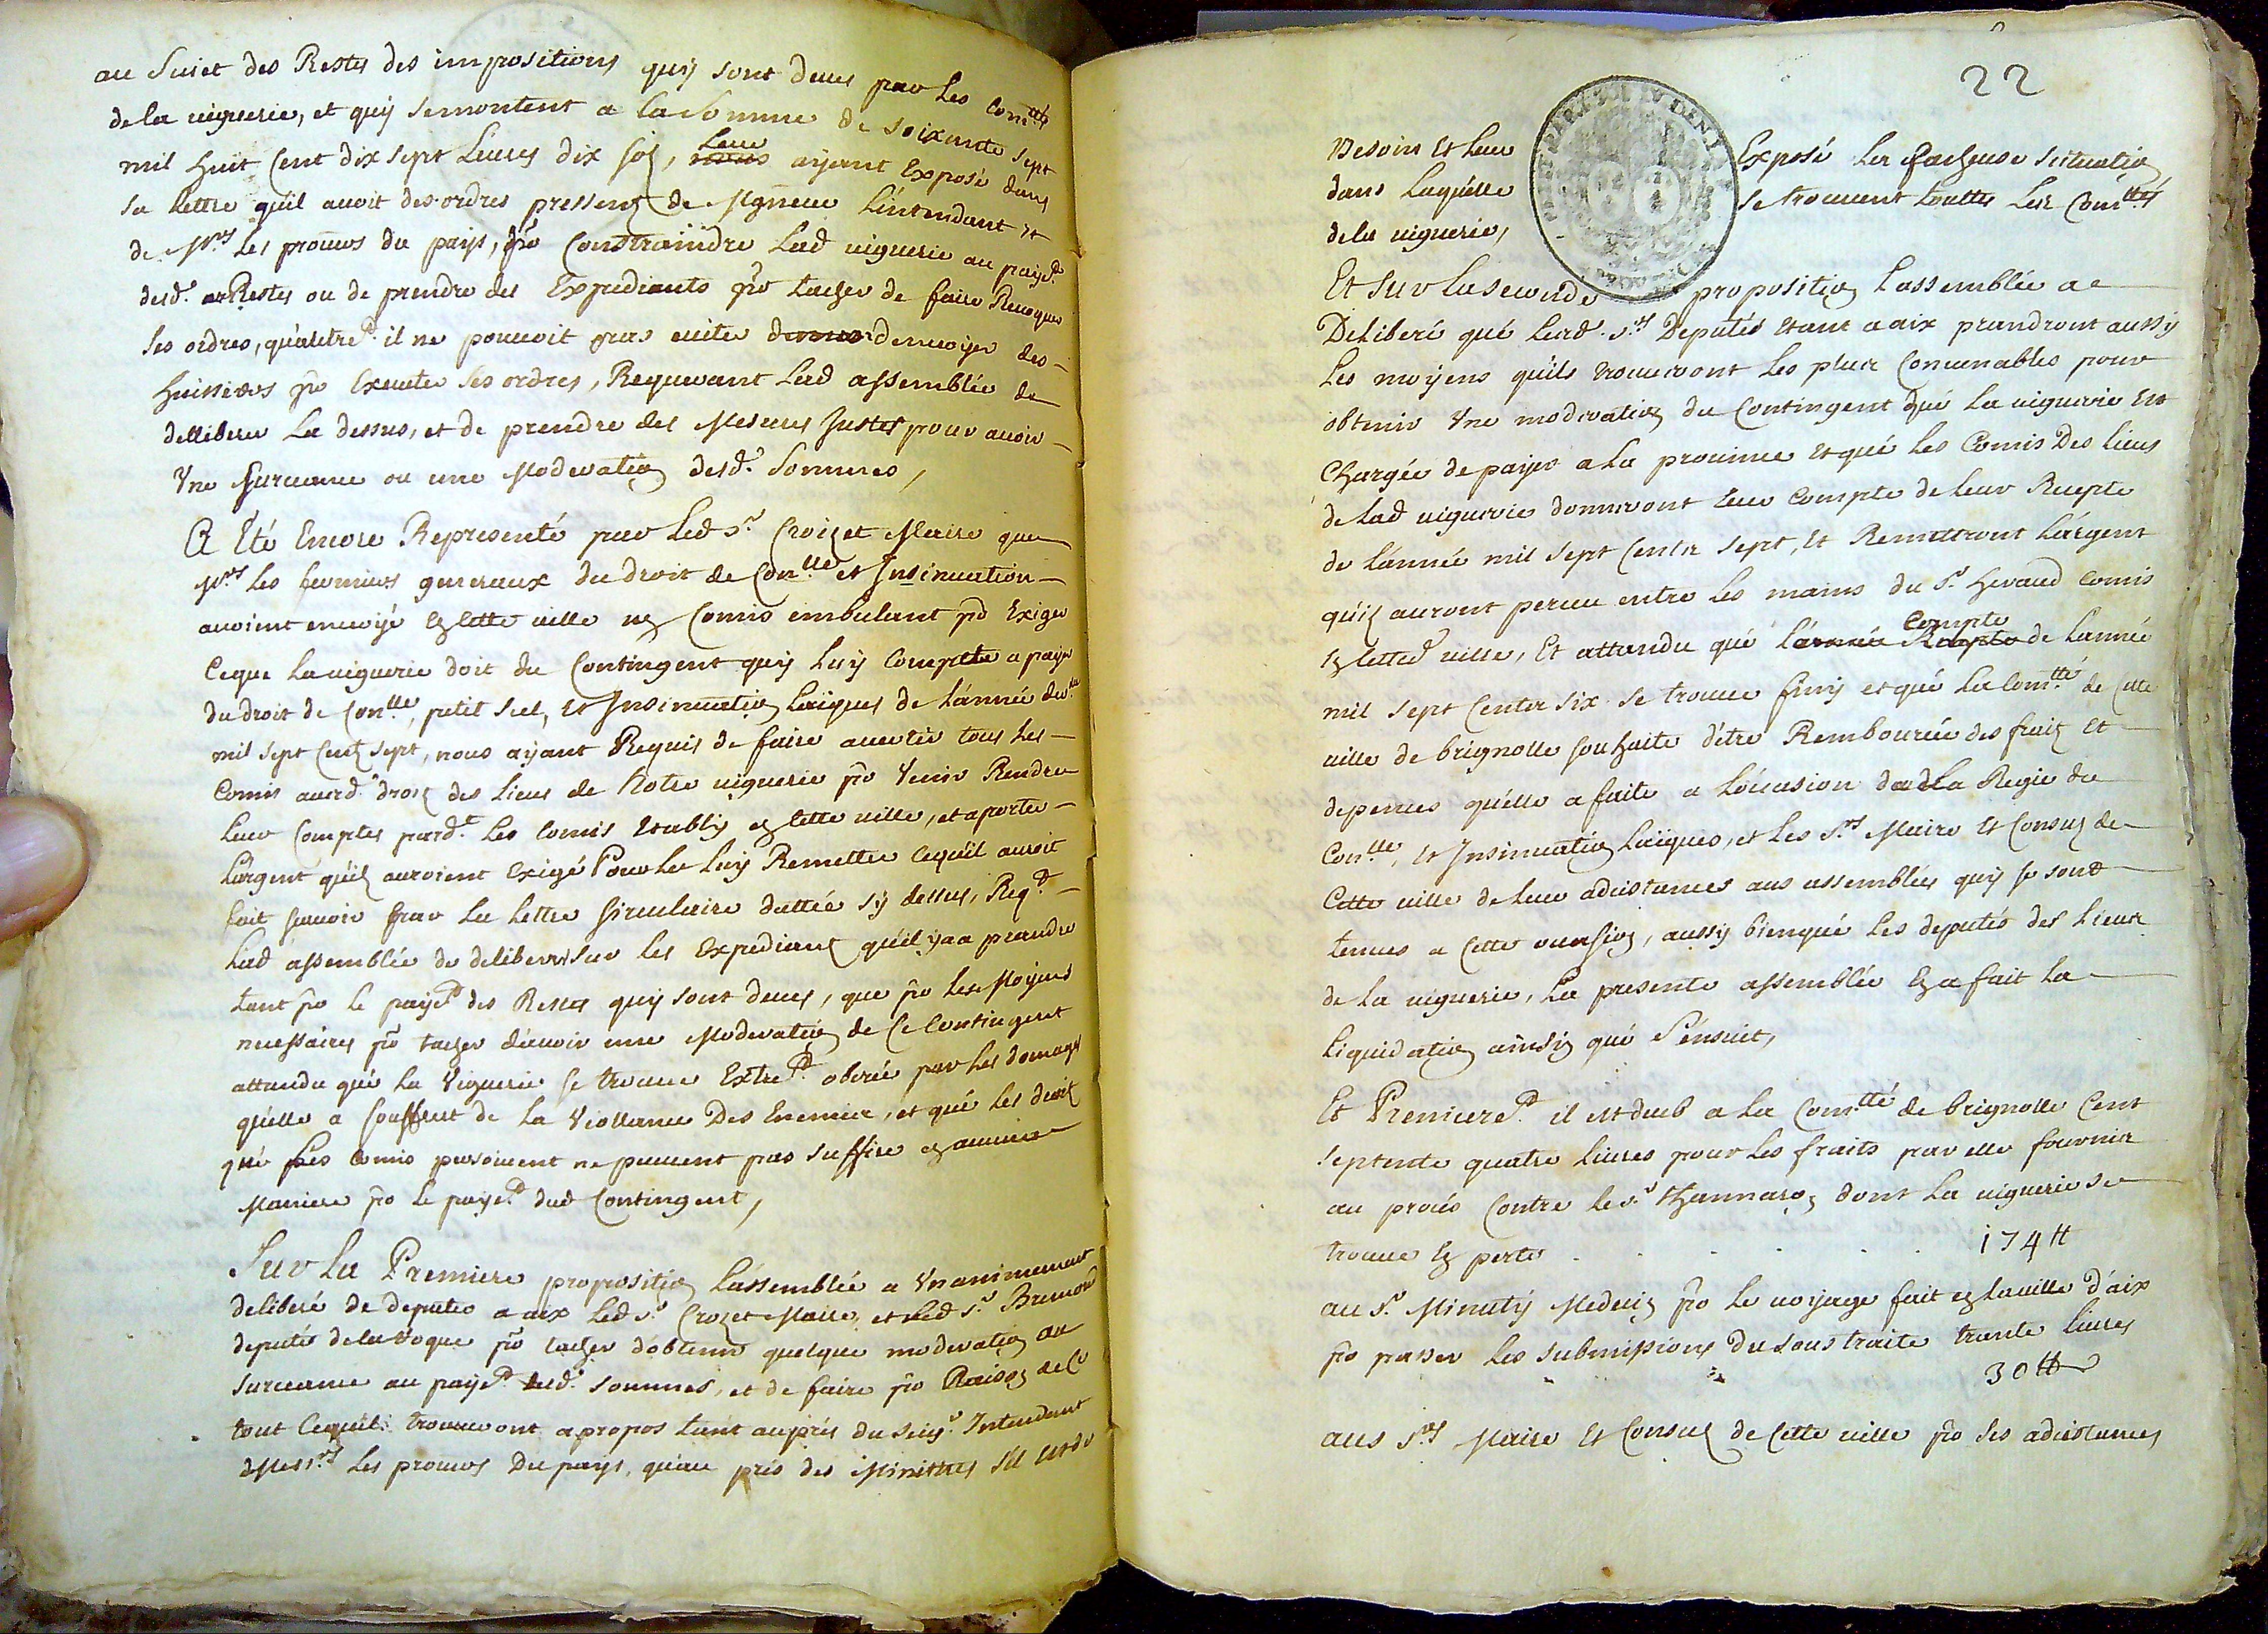 au Suiet des Restes des impositions quy sont deues par les Com.ttés
de la viguerie, et quy se montent a la somme de soixante sept
mil huit Cent dix sept Liures dix sol, Leur ayant Exposé dans
sa lettre qu'il auoit des ordres pressents de Mgneur L'intendant et
de Mrs Les procurs du pays, po Constraindre Lad viguerie au paye.t
desd. Restes ou de prendre des Expediants po tacher de faire Reuoquer
ses ordres, qu'autre.t il ne pouuoit pas euiter d'enuoyer des
huissiers po Executer ses ordres, Requerant Lad assemblée de
delliberer La dessus, et de prendre des Mesures Justes pour auoir
Vne surceance ou une Moderation desd. Sommes,
A Eté Encore Representé par Led Sr Croizet Maire que
Mrs Les fermiers generaux du droit de Con.lle et Insinuation
auoient enuoyé en Cette ville un Comis embulant po Exiger
Ceque La viguerie doit du Contingent quy luy Compette a payer
du droit de Con.lle, petit scel, et Insinuation Laiques de L'année der.re
mil sept Cent sept, nous ayant Requis de faire auertir tous les
Comis auxd. droits des Lieux de Notre viguerie po Venir Rendre
Leur Comptes pard.t Les Comis Etablis en Cette ville, et aporter
L'argent qu'ils auroient Exigé Pour Le Luy Remettre Cequ'il auroit
fait sauoir par La Lettre Circulaire dattée Cy dessus, Req.t
Lad assemblée de deliberer sur les Expediants qu'il y a a prandre
tant po le paye.t des Restes quy sont deues, que po les Moyens
necessaires po tacher d'auoir une Moderation de Ce Contingent
attandu qué La Viguerie se trouue Extre.t oberée par les domages
qu'elle a souffert de La Viollance Des Enemis, et qué les droits
qué les Comis persoiuent ne peuuent pas suffire en aucune
Maniere po le paye.t dud Contingent,
Sur La Premiere proposition L'assemblée a Vnanimement
deliberé de deputer a aix Led Sr Crozet Maire, et led Sr Bremond
deputé de la Roque po tacher d'obtenir quelque moderation ou
surceance au paye.t desd. sommes, et de faire po Raison de Ce
tout Cequ'ils trouueront a propos tant aupres du Seigr Intendant
Messrs Les procurs Du pays, qu'au prés des Ministres s'il est de
22
Besoin Et Leur Exposé La facheuse situation
dans Laquelle se trouuent touttes Les Com.ttés
de la viguerie,
Et Sur La seconde proposition L'assemblée a
Deliberé qué Lesd. Srs Deputés etant a aix prandront aussy
Les moyens qu'ils trouueront les plus Conuenables pour
obtenir Vne moderation du Contingent qué La viguerie Est
Chargée de payer a La prouince et qué Les Comis Des lieux
de Lad viguerie donneront Leur Compte de leur Recepte
de L'année mil sept Cents sept, Et Remettront L'argent
qu'ils auront perceu entre Les mains du Sr heraud Comis
en Cetted ville, Et attandu qué L'année Recepte Compte de L'année
mil sept Cents six se trouue finy et qué La Com.tté de Cette
ville de brignolle souhaite d'être Remboursée des frais Et
depences qu'elle a faite a L'occasion de La Regie du
Con.lle, Et Insinuation Laiques, et Les Srs Maire Et Consuls de
Cette ville de leur adcistances aux assemblées quy se sont
tenues a Cette occasion, aussy bienqué Les deputés des Lieux
de La viguerie, La presente assemblée En a fait La
Liquidation ainsin qué S'ensuit,
Et Premiere.t il est deub a La Com.tté de brignolle Cent
septente quatre Liures pour Les fraits par elle fournis
au procés Contre le Sr dont La viguerie se
trouue En perte . . . . 174 tt
au Sr Minuty Medecin po Le voyage fait en La ville d'aix
po passer Les submissions Du sous traite trante Liures
30 tt
aux Srs Maire Et Consuls de Cette ville po les adcistances